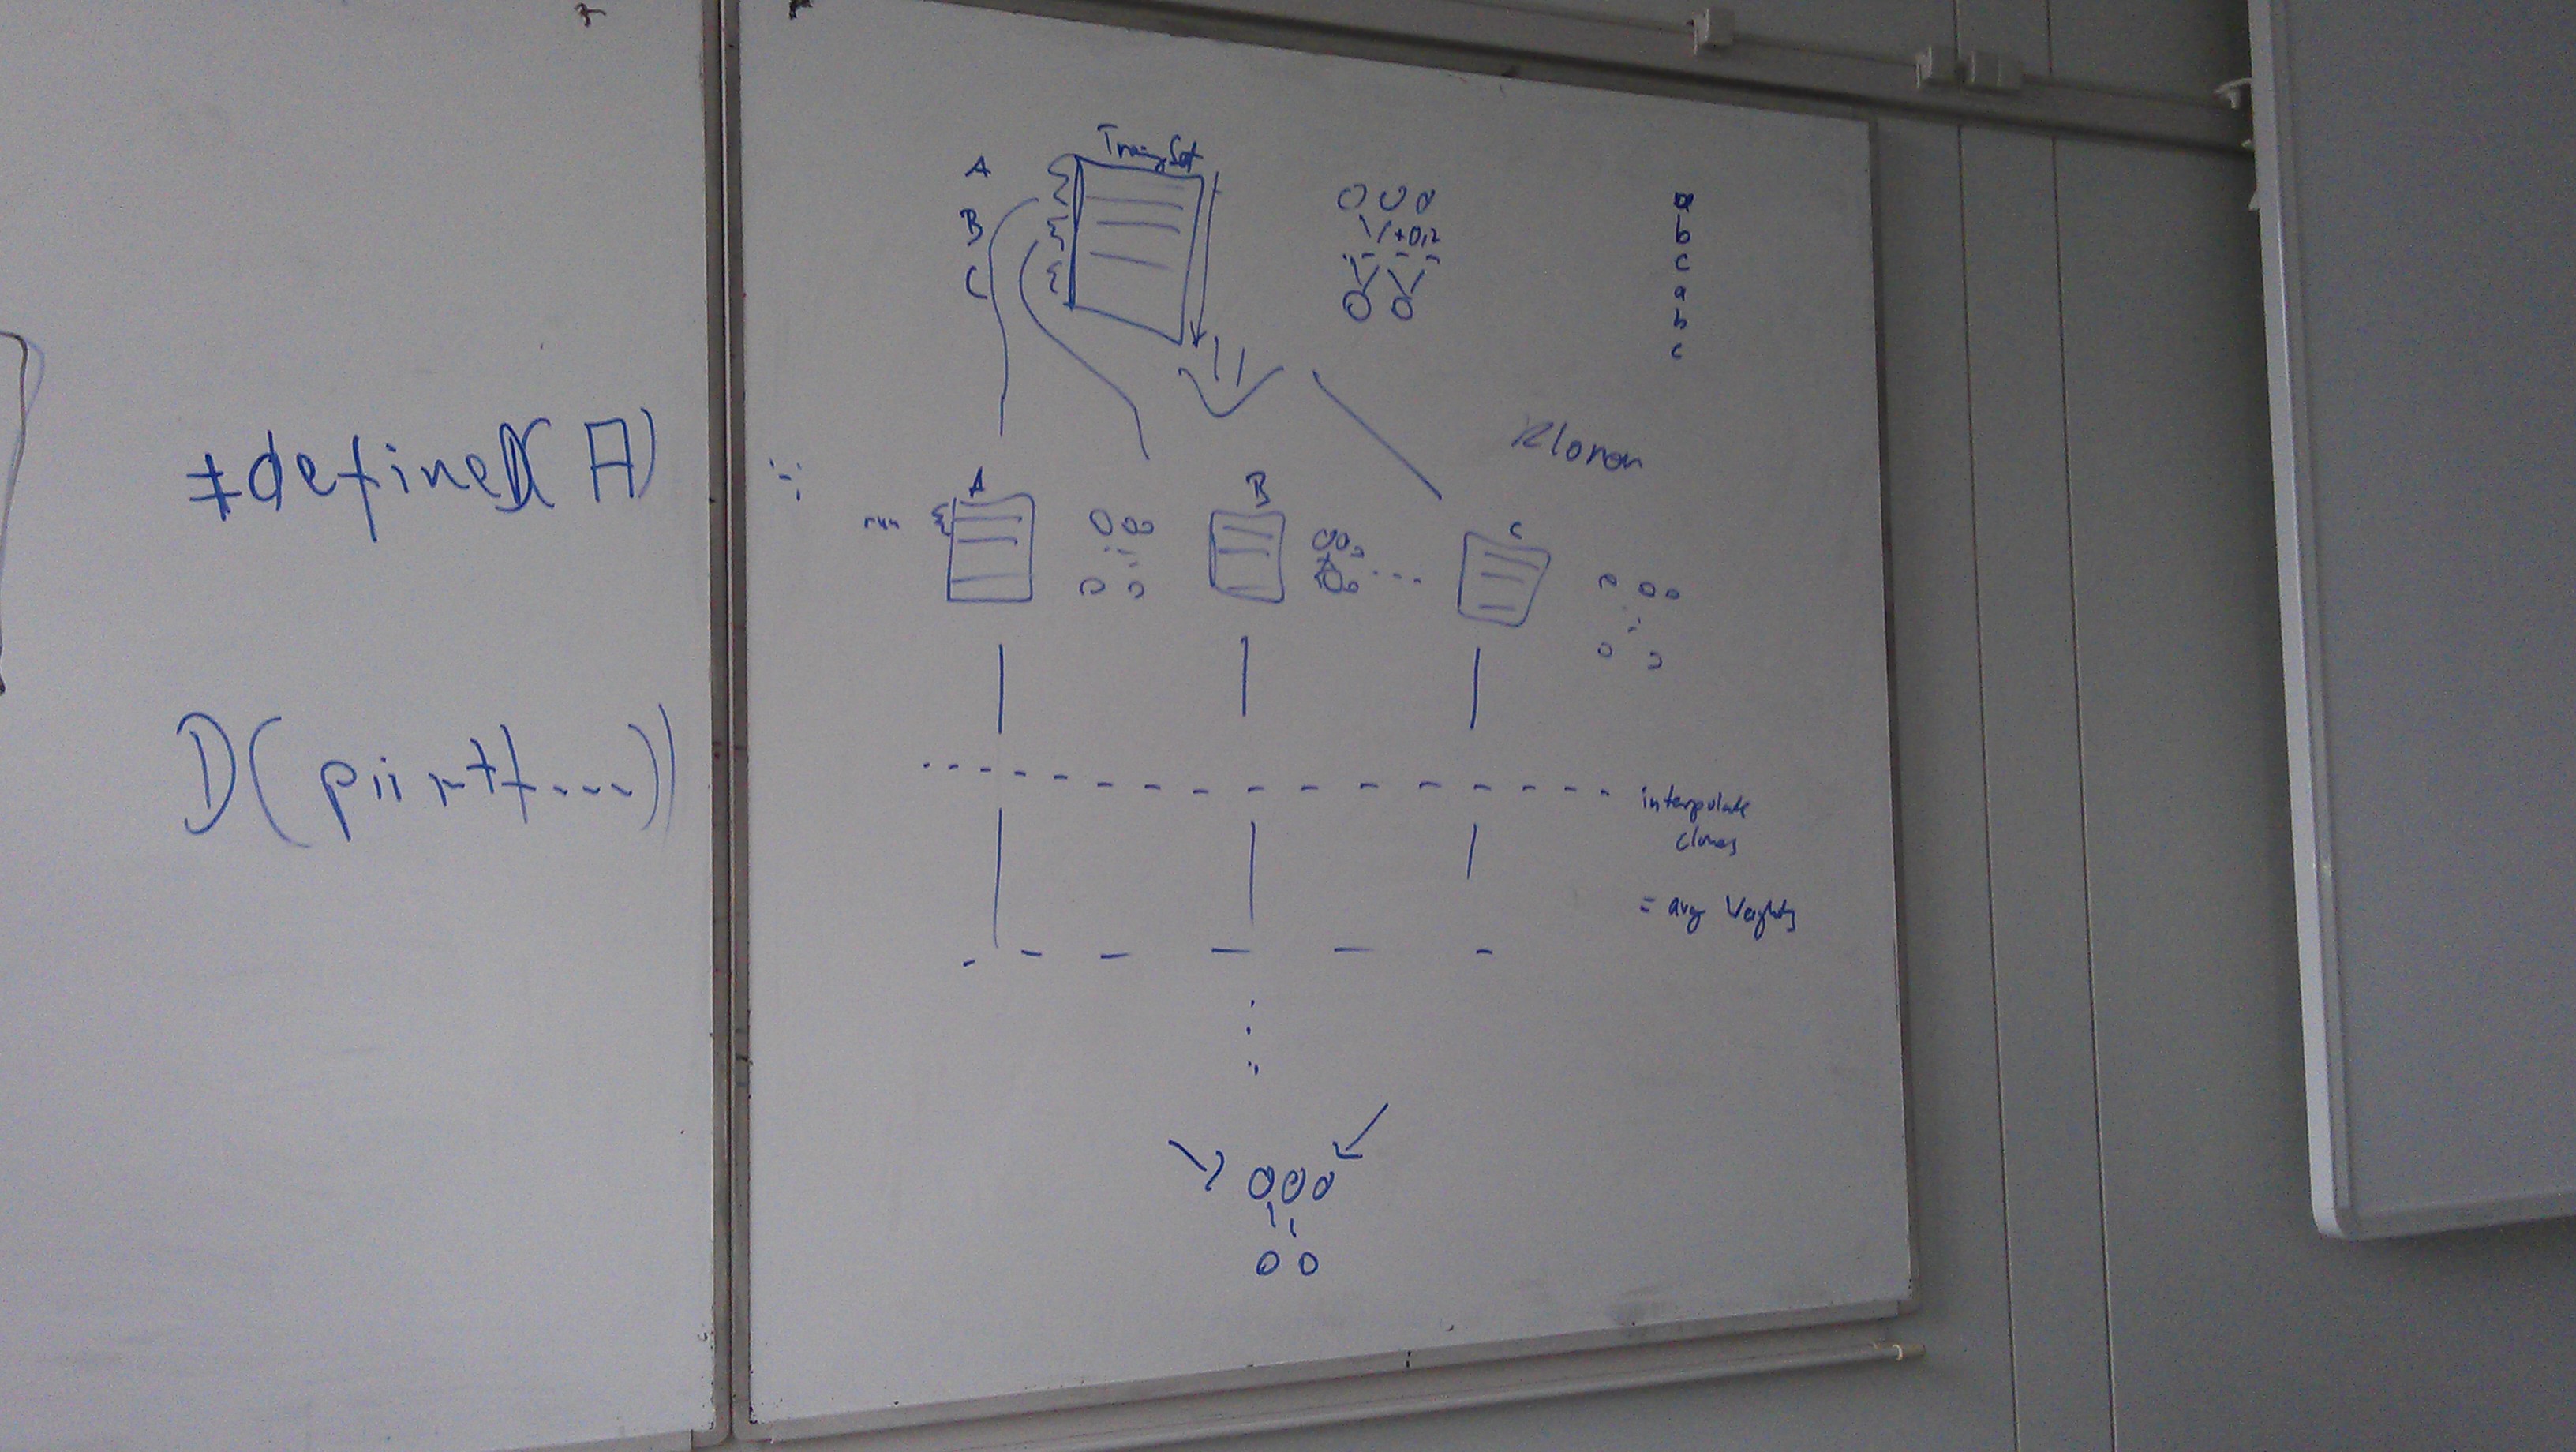 #define D(A)
D(printf...))
Traing Set
A
B
C
+0,2
a
b
c
a
b
c
Klonen
A
B
C
run
interpolate
clones
= avg Weights